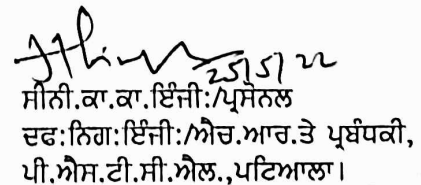 25/5/22
ਸੀਨੀ.ਕਾ.ਕਾ.ਇੰਜੀ:/ਪ੍ਰਸੋਨਲ
ਦਫ:ਨਿਗ:ਇੰਜੀ:/ਐਚ.ਆਰ.ਤੇ ਪ੍ਰਬੰਧਕੀ,
ਪੀ.ਐਸ.ਟੀ.ਸੀ.ਐਲ.,ਪਟਿਆਲਾ।